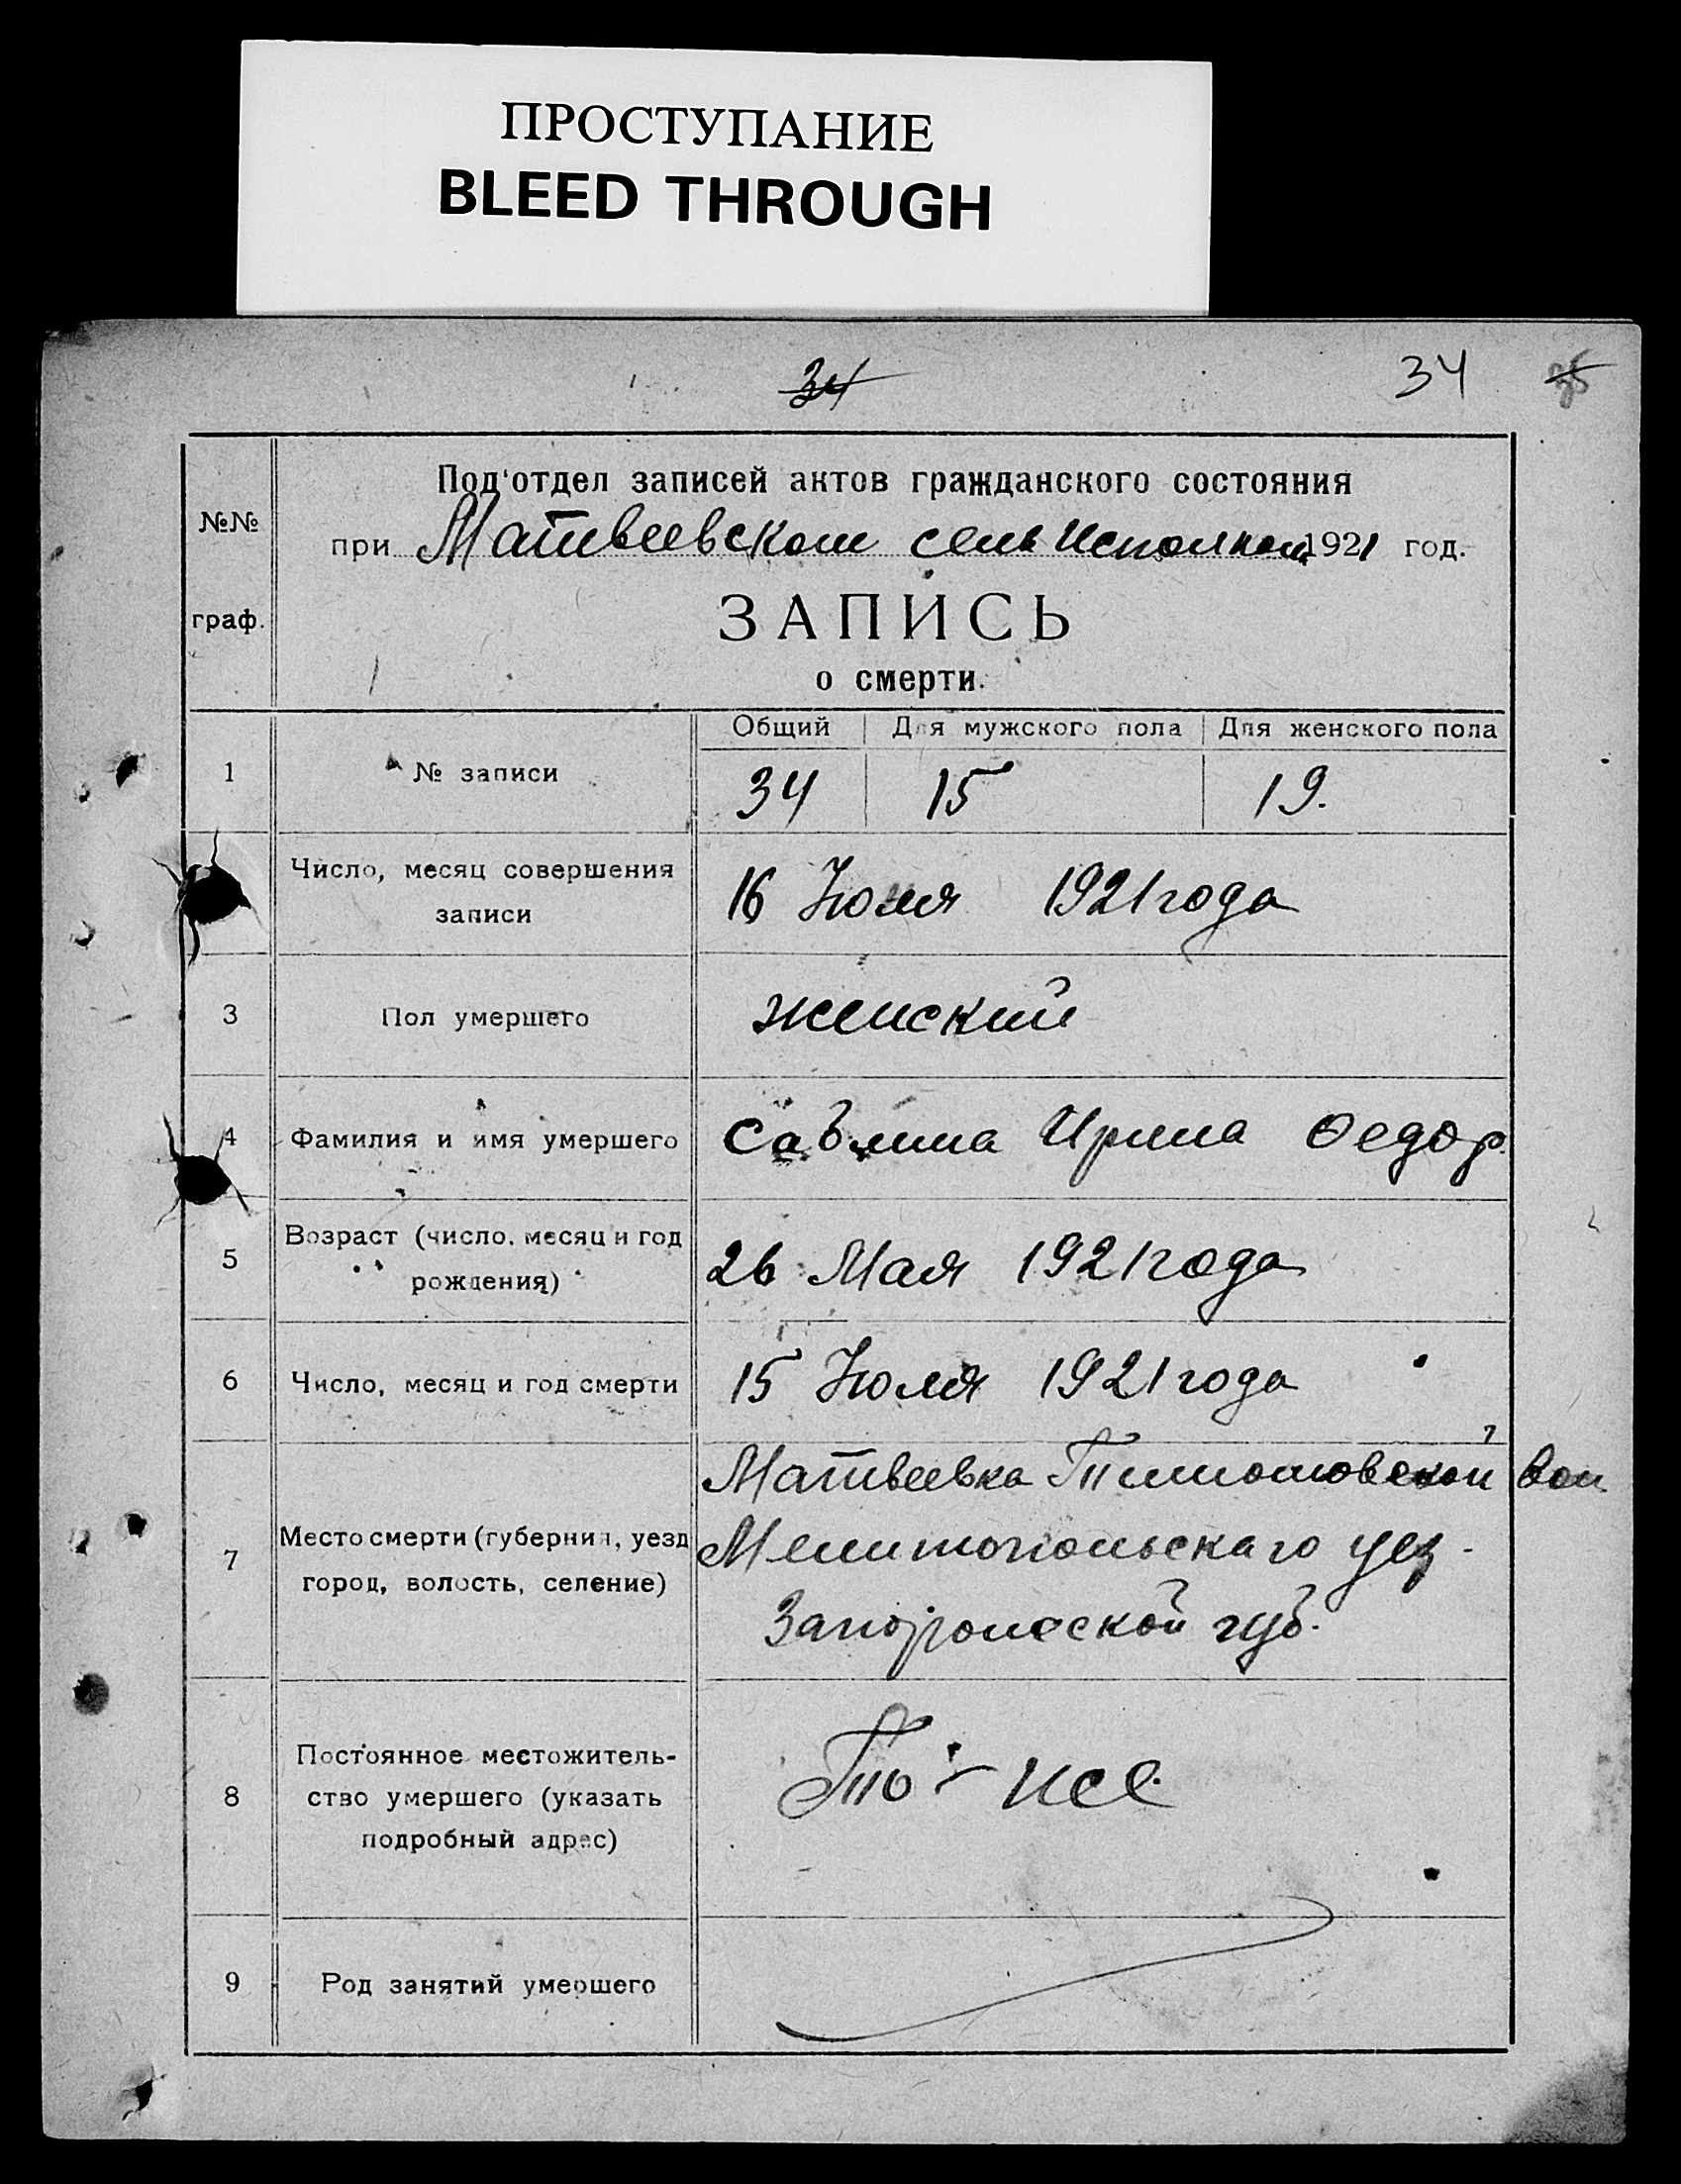 ПРОСТУПАНИЕ
BLEED THROUGH
34 34 35
Под'отдел записей актов гражданского состояния
№№
при Матвеевском сельисполком 1921 год.
граф.
ЗАПИСЬ
о смерти.
Общий Для мужского пола Для женского пола
1 № записи 34 15 19.
Число, месяц совершения
записи
16 Июля 1921 года
3 Пол умершего женский
4 Фамилия и имя умершего Савлина Ирина Федор.
Возраст (число, месяц и год
5
рождения)
26 Мая 1921 года
6 Число, месяц и год смерти 15 Июля 1921 года
Матвеевка вол.
Место смерти (губерния, уезд
7
город, волость, селение)
Мелитопольскаго уез.
Запорожской губ.
Постоянное местожитель-
8 ство умершего (указать
подробный адрес)
То-же.
9 Род занятий умершего